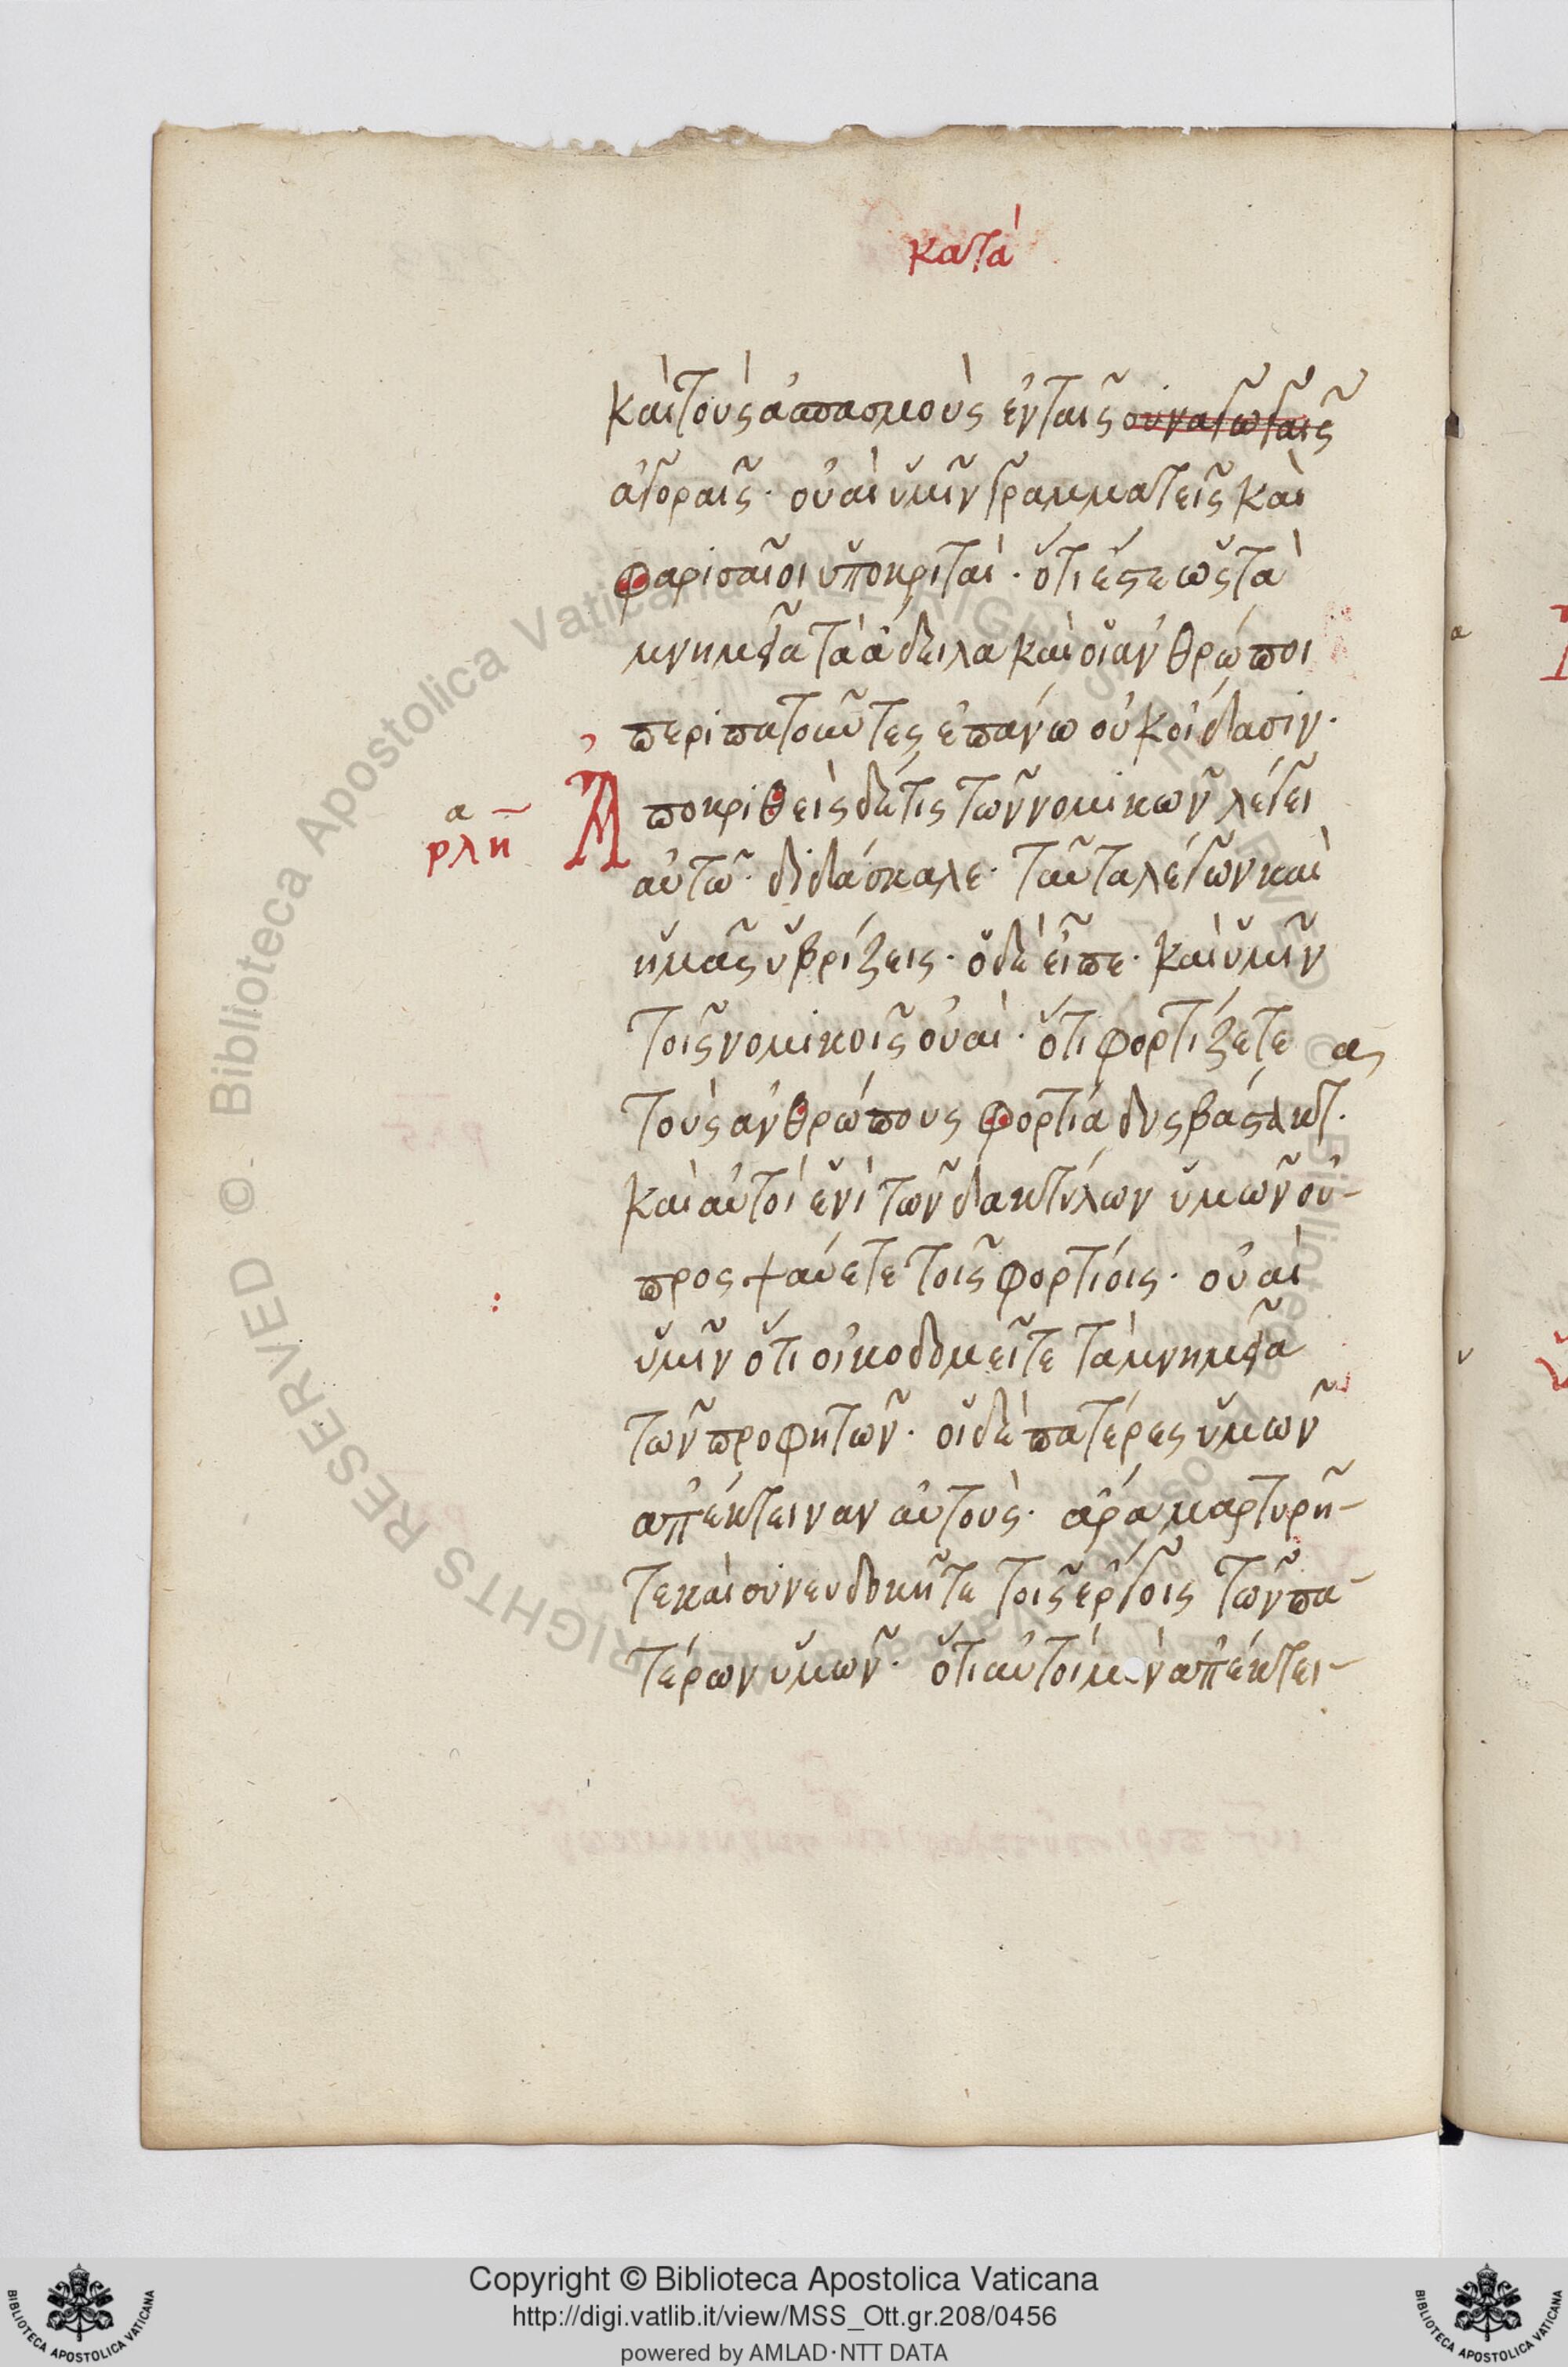 κατὰ
καὶ τοὺς ἀσπασμοὺς ἐν ταῖς συναγωγαῖς
ἀγοραῖς· οὐαὶ ὑμῖν γραμματεῖς καὶ
φαρισαῖοι ὑποκριταὶ· ὅτι ἐστὲ ὡς τὰ
μνημεῖα τὰ ἄδηλα καὶ οἱ ἄνθρωποι
περιπατοῦντες ἐπάνω οὐκ οἴδασιν·
Ἀποκριθεὶς δέ τις τῶν νομικῶν λέγει
α
ρλη
αὐτῷ· διδάσκαλε· ταῦτα λέγων καὶ
ἡμᾶς ὑβρίζεις· ὁ δὲ εἶπε· καὶ ὑμῖν
τοῖς νομικοῖς οὐαὶ· ὅτι φορτίζετε
τοὺς ἀνθρώπους φορτία δυσβάστακτ·
καὶ αὐτοὶ ἑνὶ τῶν δακτύλων ὑμῶν οὐ-
προσψαύετε τοῖς φορτίοις· οὐαὶ
ὑμῖν ὅτι οἰκοδομεῖτε τὰ μνημεῖα
τῶν προφητῶν· οἱ δὲ πατέρες ὑμῶν
ἀπέκτειναν αὐτοὺς· ἄρα μαρτυρῆ-
τε καὶ συνευδοκῆτε τοῖς ἔργοις τῶν πα-
τέρων ὑμῶν· ὅτι αὐτοὶ μ ν ἀπέκτει-
© Biblioteca Apostolica Vaticana ALL RIGHTS RESERVED
Copyright © Biblioteca Apostolica Vaticana
http://digi.vatlib.it/view/MSS_Ott.gr.208/0456
powered by AMLAD·NTT DATA
BIBLIOTECA APOSTOLICA VATICANA
BIBLIOTECA APOSTOLICA VATICANA